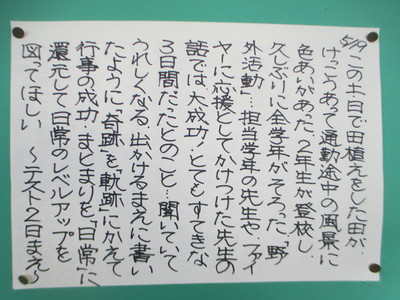 5/19 この土日で田植えをした田が、
けっこうあって通勤途中の風景に
色あいがあった。2年生が登校し
久しぶりに全学年がそろった。「野
外活動」…担当学年の先生や、ファイ
ヤーに応援としてかけつけた先生の
話では、大成功!とてもすてきな
3日間だったとのこと…聞いていて
うれしくなる。出かけるまえに書い
たように、「奇跡」を「軌跡」にかえて
行事の成功・まとまりを「日常」に
還元して日常のレベルアップを
図ってほしい ～テスト2日まえ～